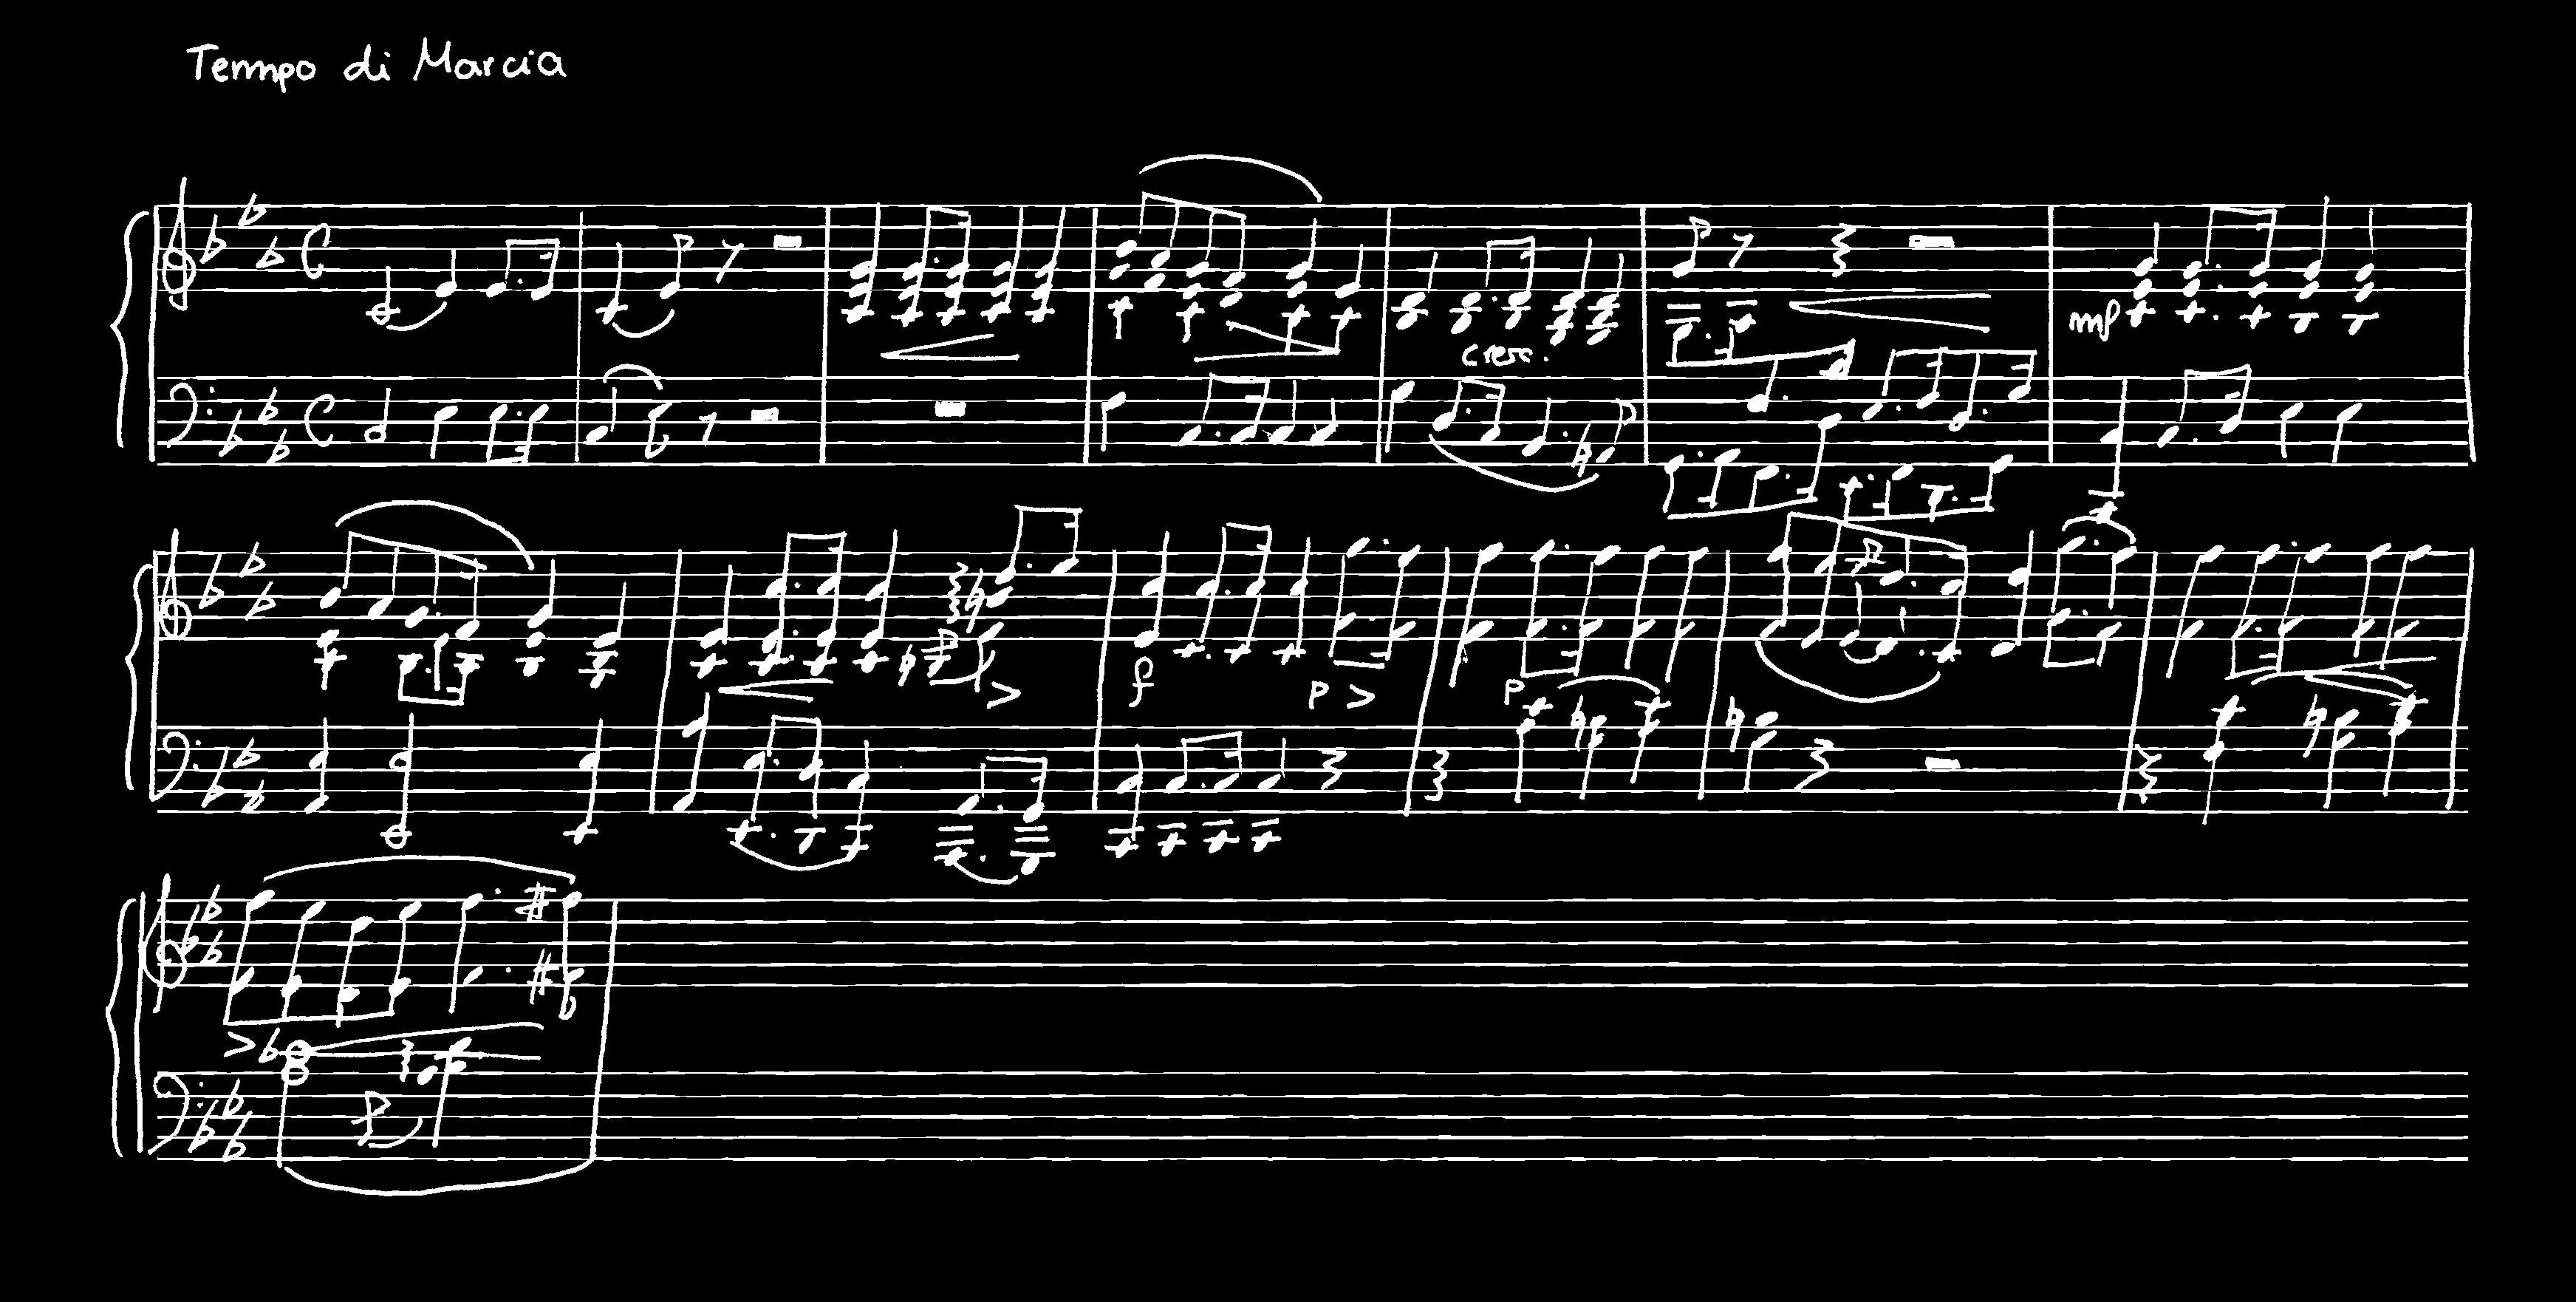 Tempo di Marcia
cresc.
mp
f p
p